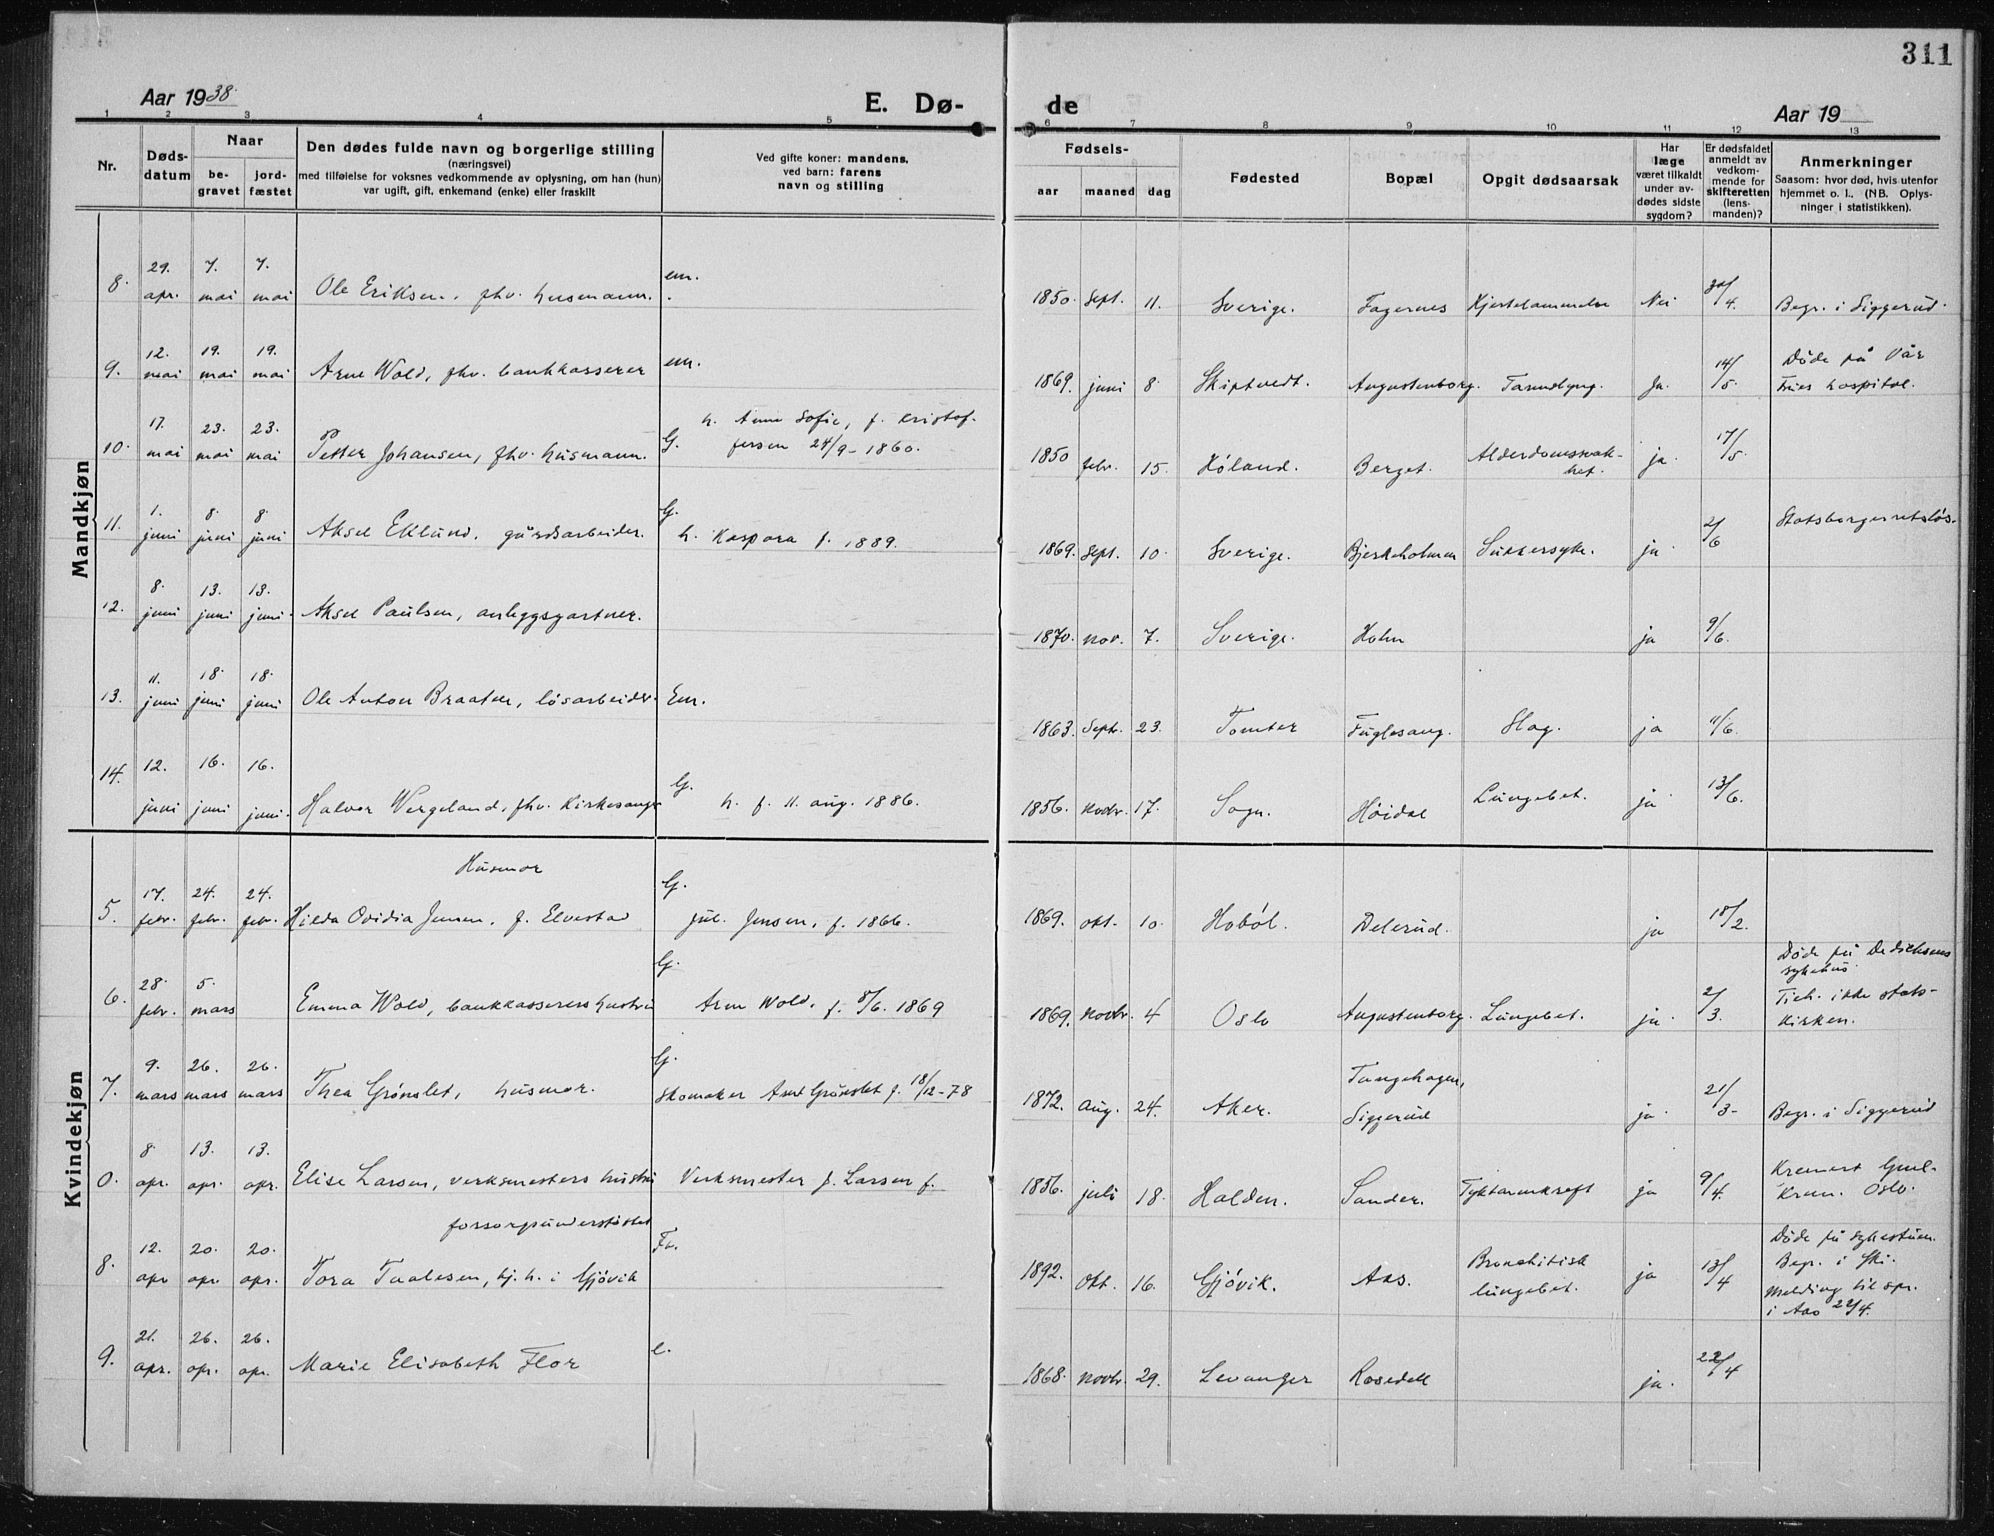 311
Aar 1938
E. Dø-
de
Aar 19
1 2 3 4 5 6 7 8 9 10 11 12 13
Nr.
Døds-
datum
Naar
be-
gravet
jord-
fæstet
Den dødes fulde navn og borgerlige stilling
(næringsvei)
med tilføielse for voksnes vedkommende av oplysning, om han (hun)
var ugift, gift, enkemand (enke) eller fraskilt
Ved gifte koner: mandens,
ved barn: farens
navn og stilling
Fødsels-
aar maaned dag
Fødested
Bopæl
Opgit dødsaarsak
Har
læge
været tilkaldt
under av-
dødes sidste
sygdom?
Er dødsfaldet
anmeldt av
vedkom-
mende for
skifteretten
(lens-
manden)?
Anmerkninger
Saasom: hvor død, hvis utenfor
hjemmet o. l.. (NB. Oplys-
ninger i statistikken).
Mandkjøn
8. 29. apr. 7. mai 7. mai Ole Eriksen, fhv. husmann. em. 1850. Sept. 11. Sverige. Fagernes Hjertelammelse Nei 30/4. Begr. i Siggerud.
9. 12. mai 19. mai 19. mai Arne Wold, fhv. bankkasserer em. 1869. juni 8. Skiptvedt. Augustenborg. Ja. 14/5. Døde på Vår
Frues hospital.
10. 17. mai 23. mai 23. mai Petter Johansen, fhv. husmann. G. h. Anne Sofie, f. Kristof-
fersen 24/9-1860. 1850 febr. 15. Høland. Berget. Alderdomssvak-
het. ja 17/5.
11. 1. juni 8. juni 8. juni Aksel Eklund, gårdsarbeider. G. h. Kaspara f. 1889. 1869. Sept. 10. Sverige. Bjerkeholmen Sukkersyke. ja 2/6 Statsborgerretsløs.
12. 8. juni 13. juni 13. juni. Aksel Paulsen, anleggsgartner. 1870. nov. 7. Sverige. Holm ja 9/6.
13. 11. juni 18. juni 18. juni Ole Anton Braaten, løsarbeider. Em. 1863. Septr. 23. Tomter Fuglesang. Slag. ja 11/6.
14. 12. juni 16. juni 16. juni. Halvor Wergeland, fhv. Kirkesanger G. h. f. 11. aug. 1886. 1856. Novbr. 17. Sogn. Høidal Lungebet. ja 13/6.
Kvindekjøn
Husmor
5. 17. febr. 24. febr. 24. febr. Hilda Ovidia Jensen, f. Elvestad G. Jul. Jensen, f. 1866. 1869. okt. 10. Hobøl. Delerud. ja 18/2.
6. 28. febr. 5. mars Emma Wold, bankkasserers hustru G. Arne Wold, f. 8/6. 1869 1869. Novbr. 4 Oslo Augustenborg. Lungebet. ja 2/3. Døde på Dedichens
sykehus.
Tilh. ikke stats-
kirken.
7. 9. mars 26. mars 26. mars Thea Grønslet, husmor. G. Skomaker Arnt Grønslet f. 18/12-78 1872. Aug. 24. Aker. Tangehagen,
Siggerud ja 21/3- Begr. i Siggerud
0. 8. apr. 13. apr. 13. apr. Elise Larsen, verksmesters hustru Verksmester J. Larsen f. 1856. juli 18. Halden. Sander. Tyktarmkreft ja 9/4. Kremert Gml.
Krem. Oslo.
forsorgsunderstøttet
8. 12. apr 20. apr. 20. apr. Tora Taalesen, hj. h. i Gjøvik Fr. 1892. Okt. 16. Gjøvik. Aas. Bronchitisk
lungebet. ja 13/4 Døde på sykestuen.
Begr. i Ski.
Melding til spr.
i Aas 22/4.
9. 21. apr. 26. apr. 26. apr. Marie Elisabeth Flor e. 1868. Novbr. 29. Levanger Rosedal ja. 22/4